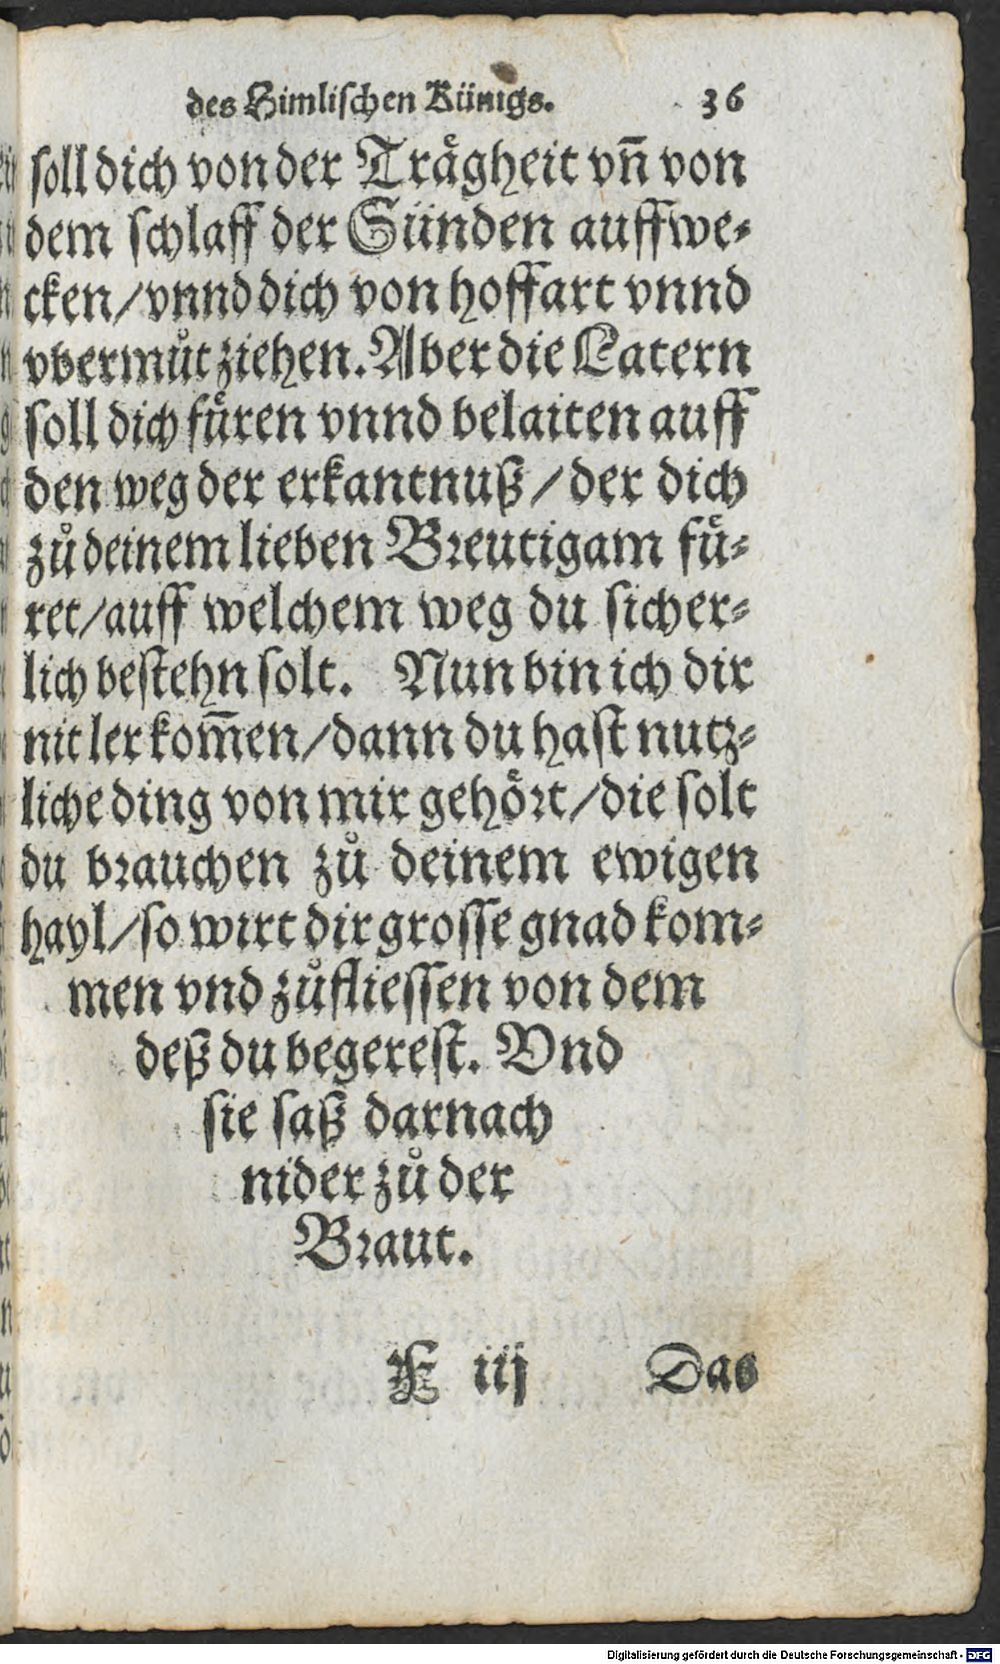 des Himlischen Künigs. 36
soll dich von der Trågheit vn̄ von
dem schlaff der Sünden auffwe⸗
cken/vnnd dich von hoffart vnnd
vbermůt ziehen. Aber die Latern
soll dich fůren vnnd belaiten auff
den weg der erkantnuß/der dich
zů deinem lieben Breutigam fů⸗
ret/auff welchem weg du sicher⸗
lich bestehn solt. Nun bin ich dir
nit ler kom̄en/dann du hast nutz⸗
liche ding von mir gehôrt/die solt
du brauchen zů deinem ewigen
hayl/so wirt dir grosse gnad kom⸗
men vnd zůfliessen von dem
deß du begerest. Vnd
sie saß darnach
nider zů der
Braut.
E iij Das
Digitalisierung gefördert durch die Deutsche Forschungsgemeinschaft - DFG